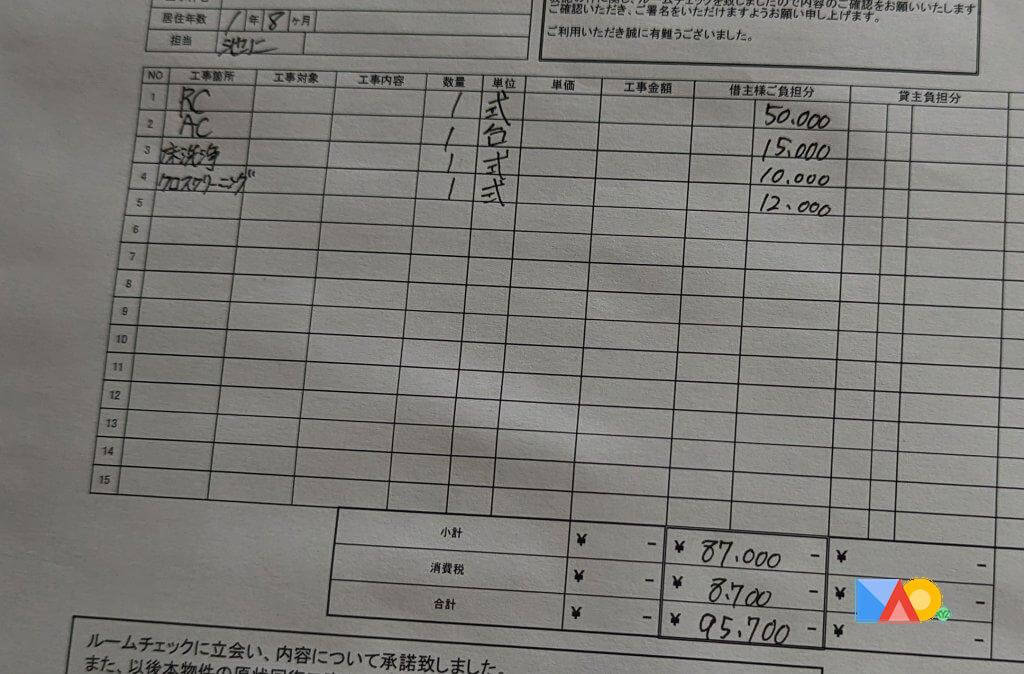 居住年数 1 年 8 ヶ月
担当
ご確認いただき、ご署名をいただけますようお願い申し上げます。
ご利用いただき誠に有難うございました。
NO 工事箇所 工事対象 工事内容 数量 単位 単価 工事金額 借主様ご負担分 貸主負担分
1 RC 1 式 50.000
2 AC 1 台 15.000
3 床洗浄 1 式 10.000
4 クロスクリーニング 1 式 12.000
5
6
7
8
9
10
11
12
13
14
15
小計 ¥ - ¥ 87.000 - ¥ -
消費税 ¥ - ¥ 8.700 - ¥ -
合計 ¥ - ¥ 95.700 - ¥ -
ルームチェックに立会い、内容について承諾致しました。
また、以後本物件の原状回復